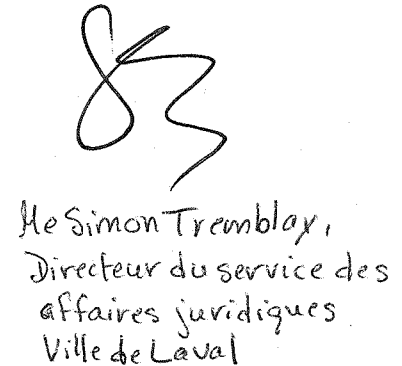 Me Simon Tremblay,
Directeur du service des
affaires juridiques
Ville de Laval